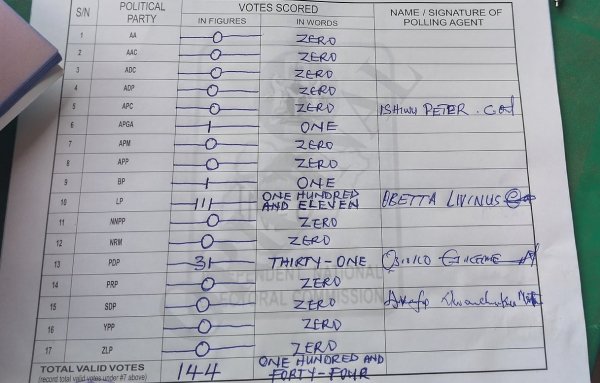 S/N POLITICAL PARTY VOTES SCORED NAME / SIGNATURE OF POLLING AGENT
IN FIGURES IN WORDS
1 AA 0 ZERO
2 AAC 0 ZERO
3 ADC 0 ZERO
4 ADP 0 ZERO
5 APC 0 ZERO ISHIWU PETER
6 APGA 1 ONE
7 APM 0 ZERO
8 APP 0 ZERO
9 BP 1 ONE
10 LP 111 ONE HUNDRED AND ELEVEN OBETTA LIVINUS
11 NNPP 0 ZERO
12 NRM 0 ZERO
13 PDP 31 THIRTY-ONE
14 PRP 0 ZERO
15 SDP 0 ZERO
16 YPP 0 ZERO
17 ZLP 0 ZERO
TOTAL VALID VOTES 144 ONE HUNDRED AND FORTY-FOUR
(record total valid votes under #7 above)